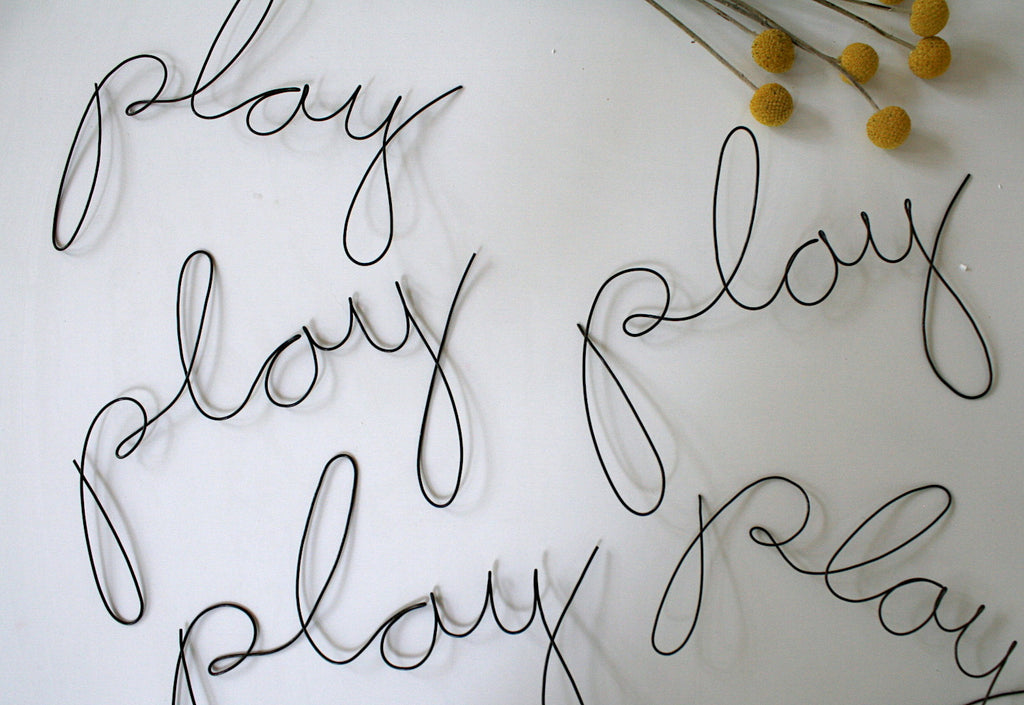 play
play
play
play
play